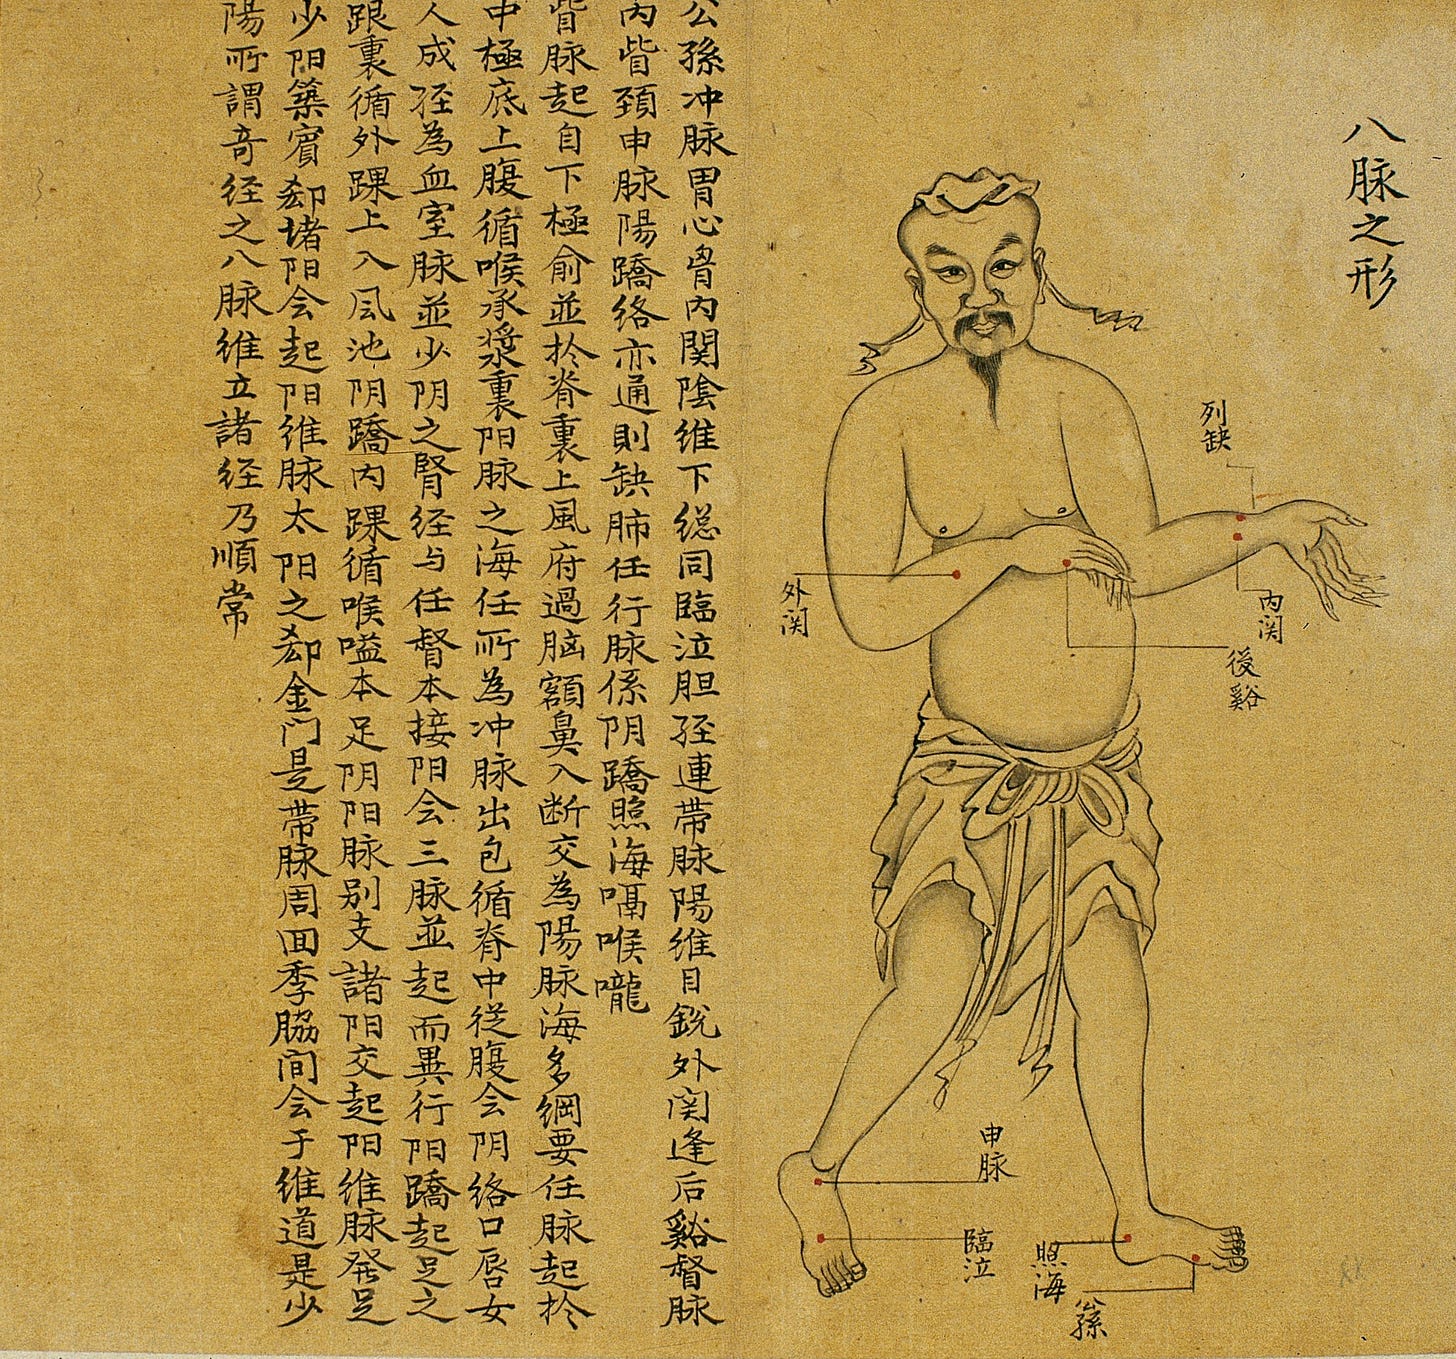 八脉之形
列缺
内関
後谿
外関
申脉
臨泣
照海
公孫
公孫冲脉胃心胷内関陰維下総同臨泣胆経連帯脉陽維目銳外関逢后谿督脉
内眥頚申脉陽蹻絡亦通則缺肺任行脉係阴蹻照海嗝喉嚨
脉起自下極俞並扵脊裏上風府過脑額鼻入断交為陽脉海多綱要任脉起扵
中極底上腹循喉承漿裏阳脉之海任所為冲脉出包循脊中従腹会阴络口唇女
人成経為血室脉並少阴之腎経与任督本接阳会三脉並起而異行阳蹻起足之
跟裏循外踝上入风池阴蹻内踝循喉嗌本足阴阳脉别支諸阳交起阳维脉発足
少阳築賔郄堵阳会起阳维脉太阳之郄金门是帯脉周回季脇间会于维道是少
陽所謂奇経之八脉维立諸経乃順常